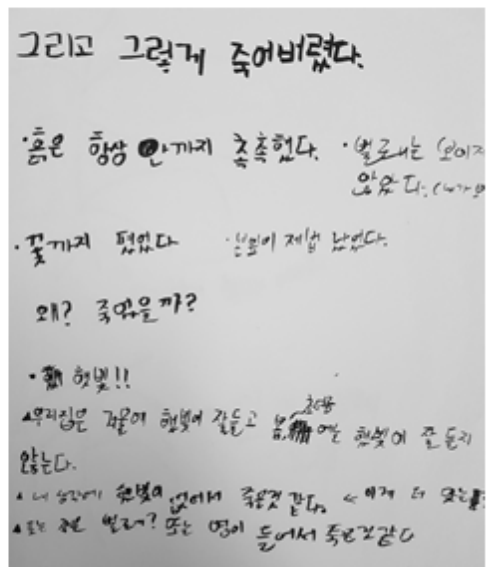 그리고 그렇게 죽어버렸다.
·흙은 항상 안까지 촉촉했다. ·벌레는 보이지
않았다. (내가
·꽃까지 폈었다 ·분명히 제법 났었다.
왜? 죽었을까?
· 햇빛!!
우리집은 겨울에 햇빛이 잘들고 봄, 여름 에는 햇빛이 잘 들지
않는다.
내 생각에 햇빛이 없어서 죽은것 같다. « 이게 더 맞는
또는 벌레? 또는 병이 들어서 죽은것같다